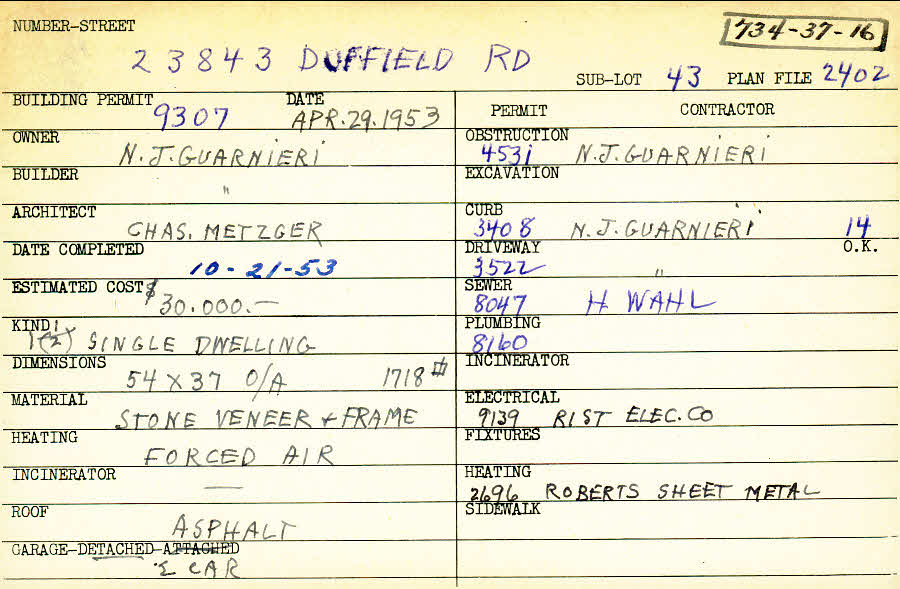 NUMBER-STREET
734-37-16
23843 DUFFIELD RD
SUB-LOT 43 PLAN FILE 2402
BUILDING PERMIT 9307 DATE APR.29.1953
OWNER N.J.GUARNIERI
BUILDER "
ARCHITECT CHAS. METZGER
DATE COMPLETED 10-21-53
ESTIMATED COST $30.000.—
KIND: 1(2) SINGLE DWELLING
DIMENSIONS 54 X 37 O/A 1718 #
MATERIAL STONE VENEER + FRAME
HEATING FORCED AIR
INCINERATOR —
ROOF ASPHALT
GARAGE-DETACHED-ATTACHED
2 CAR
PERMIT CONTRACTOR
OBSTRUCTION
4531 N.J.GUARNIERI
EXCAVATION
CURB
3408 N.J.GUARNIERI 14
DRIVEWAY O.K.
3522 "
SEWER
8047 H WAHL
PLUMBING
8160
INCINERATOR
ELECTRICAL
9139 RIST ELEC.CO
FIXTURES
HEATING
2696 ROBERTS SHEET METAL
SIDEWALK